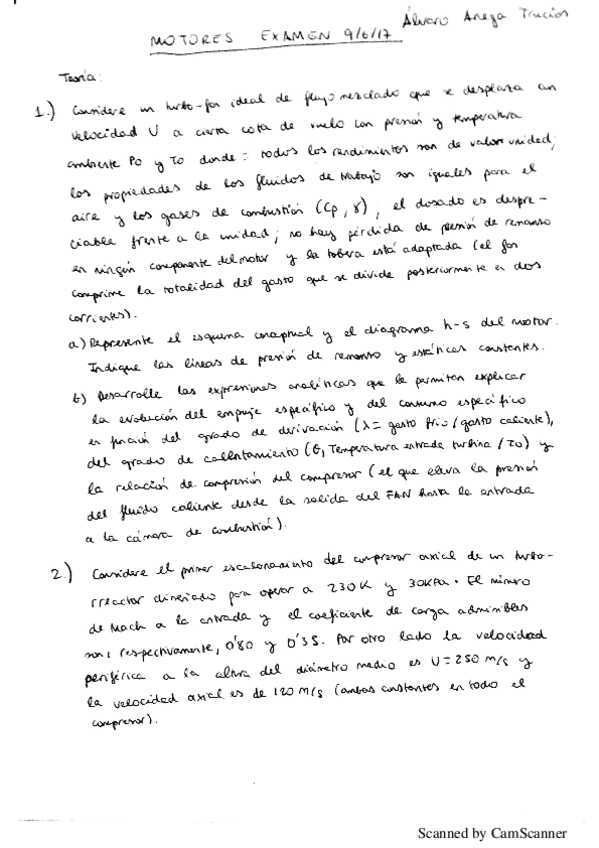 Álvaro Anega Trucios
MOTORES EXAMEN 9/6/17
Teoría:
1.) Considere un turbo-fan ideal de flujo mezclado que se desplaza con
velocidad V a cierta cota de vuelo con presión y temperatura
ambiente Po y To donde: todos los rendimientos son de valor unidad;
las propiedades de los fluidos de trabajo son iguales para el
aire y los gases de combustión (Cp, γ); el dosado es despre-
ciable frente a la unidad; no hay pérdida de presión de remanso
en ningún componente del motor y la tobera está adaptada (el fan
comprime la totalidad del gasto que se divide posteriormente en dos
corrientes).
a) Represente el esquema conceptual y el diagrama h-s del motor.
Indique las líneas de presión de remanso y estáticas constantes.
b) Desarrolle las expresiones analíticas que le permitan explicar
la evolución del empuje específico y del consumo específico
en función del grado de derivación (λ = gasto frío / gasto caliente),
del grado de calentamiento (θ, Temperatura entrada turbina / To) y
la relación de compresión del compresor (el que eleva la presión
del fluido caliente desde la salida del FAN hasta la entrada
a la cámara de combustión).
2.) Considere el primer escalonamiento del compresor axial de un turbo-
rreactor diseñado para operar a 230K y 30KPa. El número
de Mach a la entrada y el coeficiente de carga admisibles
son, respectivamente, 0'80 y 0'35. Por otro lado la velocidad
periférica a la altura del diámetro medio es U=250 m/s y
la velocidad axial es de 120 m/s (ambas constantes en todo el
compresor).
Scanned by CamScanner